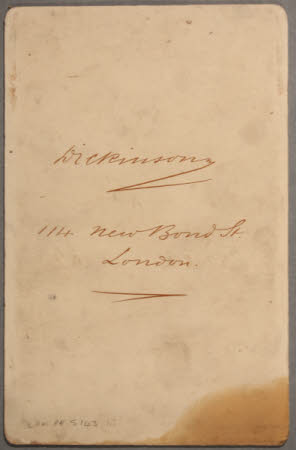 Dickinson
114 New Bond St
London.